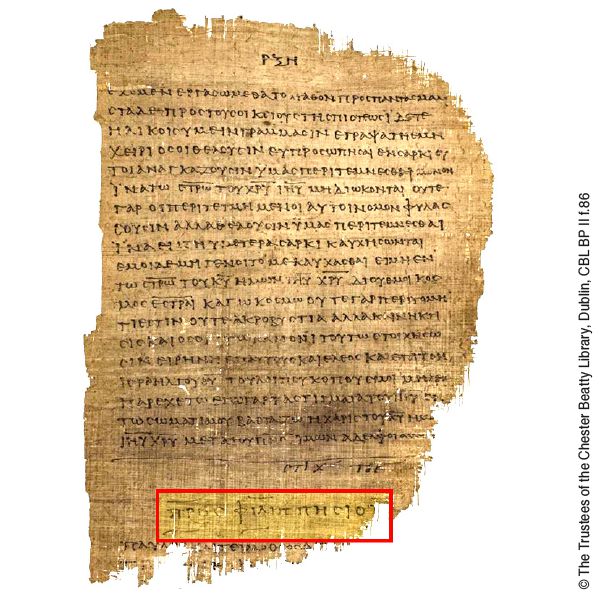 ΡΞΗ
ΕΧΟΜΕΝ ΕΡΓΑϹΩΜΕΘΑ ΤΟ ΑΓΑΘΟΝ ΠΡΟϹ ΠΑΝΤΑϹ ΜΑΛΙ
ϹΤΑ ΔΕ ΠΡΟϹ ΤΟΥϹ ΟΙΚΕΙΟΥϹ ΤΗϹ ΠΙϹΤΕΩϹ ΙΔΕΤΕ
ΗΛΙΚΟΙϹ ΥΜΕΙΝ ΓΡΑΜΜΑϹΙΝ ΕΓΡΑΨΑ ΤΗ ΕΜΗ
ΧΕΙΡΙ ΟϹΟΙ ΘΕΛΟΥϹΙΝ ΕΥΠΡΟϹΩΠΗϹΑΙ ΕΝ ϹΑΡΚΙ ΟΥ
ΤΟΙ ΑΝΑΓΚΑΖΟΥϹΙΝ ΥΜΑϹ ΠΕΡΙΤΕΜΝΕϹΘΑΙ ΜΟΝΟΝ
ΙΝΑ ΤΩ ϹΤΡΩ ΤΟΥ ΧΡΥ ΙΗΥ ΜΗ ΔΙΩΚΟΝΤΑΙ ΟΥΤΕ
ΓΑΡ ΟΙ ΠΕΡΙΤΕΤΜΗΜΕΝΟΙ ΑΥΤΟΙ ΝΟΜΟΝ ΦΥΛΑϹ
ϹΟΥϹΙΝ ΑΛΛΑ ΘΕΛΟΥϹΙΝ ΥΜΑϹ ΠΕΡΙΤΕΜΝΕϹΘΑΙ
ΙΝΑ ΕΝ ΤΗ ΥΜΕΤΕΡΑ ϹΑΡΚΙ ΚΑΥΧΗϹΩΝΤΑΙ
ΕΜΟΙ ΔΕ ΜΗ ΓΕΝΟΙΤΟ ΚΑΥΧΑϹΘΑΙ ΕΙ ΜΗ ΕΝ
ΤΩ ϹΤΡΩ ΤΟΥ ΚΥ ΗΜΩΝ ΙΗΥ ΧΡΥ ΔΙ ΟΥ ΕΜΟΙ ΚΟϹ
ΜΟϹ ΕϹΤΡΑΙ ΚΑΓΩ ΚΟϹΜΩ ΟΥΤΕ ΓΑΡ ΠΕΡΙΤΟΜΗ
ΤΙ ΕϹΤΙΝ ΟΥΤΕ ΑΚΡΟΒΥϹΤΙΑ ΑΛΛΑ ΚΑΙΝΗ ΚΤΙ
ϹΙϹ ΚΑΙ ΟϹΟΙ ΤΩ ΚΑΝΟΝΙ ΤΟΥΤΩ ϹΤΟΙΧΗϹΩ
ϹΙΝ ΕΙΡΗΝΗ ΕΠ ΑΥΤΟΥϹ ΚΑΙ ΕΛΕΟϹ ΚΑΙ ΕΠΙ ΤΟΝ
ΙϹΡΑΗΛ ΤΟΥ ΘΥ ΤΟΥ ΛΟΙΠΟΥ ΚΟΠΟΥϹ ΜΟΙ ΜΗΔΕΙϹ
ΠΑΡΕΧΕΤΩ ΕΓΩ ΓΑΡ ΤΑ ϹΤΙΓΜΑΤΑ ΤΟΥ ΙΗΥ ΕΝ
ΤΩ ϹΩΜΑΤΙ ΜΟΥ ΒΑϹΤΑΖΩ Η ΧΑΡΙϹ ΤΟΥ ΚΥ ΗΜΩ
ΙΗΥ ΧΡΥ ΜΕΤΑ ΤΟΥ ΠΝϹ ΥΜΩΝ ΑΔΕΛΦΟΙ ΑΜΗΝ
ϹΤΙΧ ΤΟΕ
ΠΡΟϹ ΦΙΛΙΠΠΗϹΙΟΥϹ
ΠΑΥΛΟϹ ΚΑΙ ΤΕΙΜΟΘΕΟϹ
© The Trustees of the Chester Beatty Library, Dublin, CBL BP II f.86